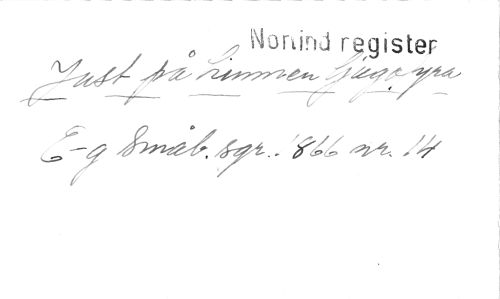 Norrlnd register
Just på timmen
E-g Småb. sgr. 1866 nr. 14